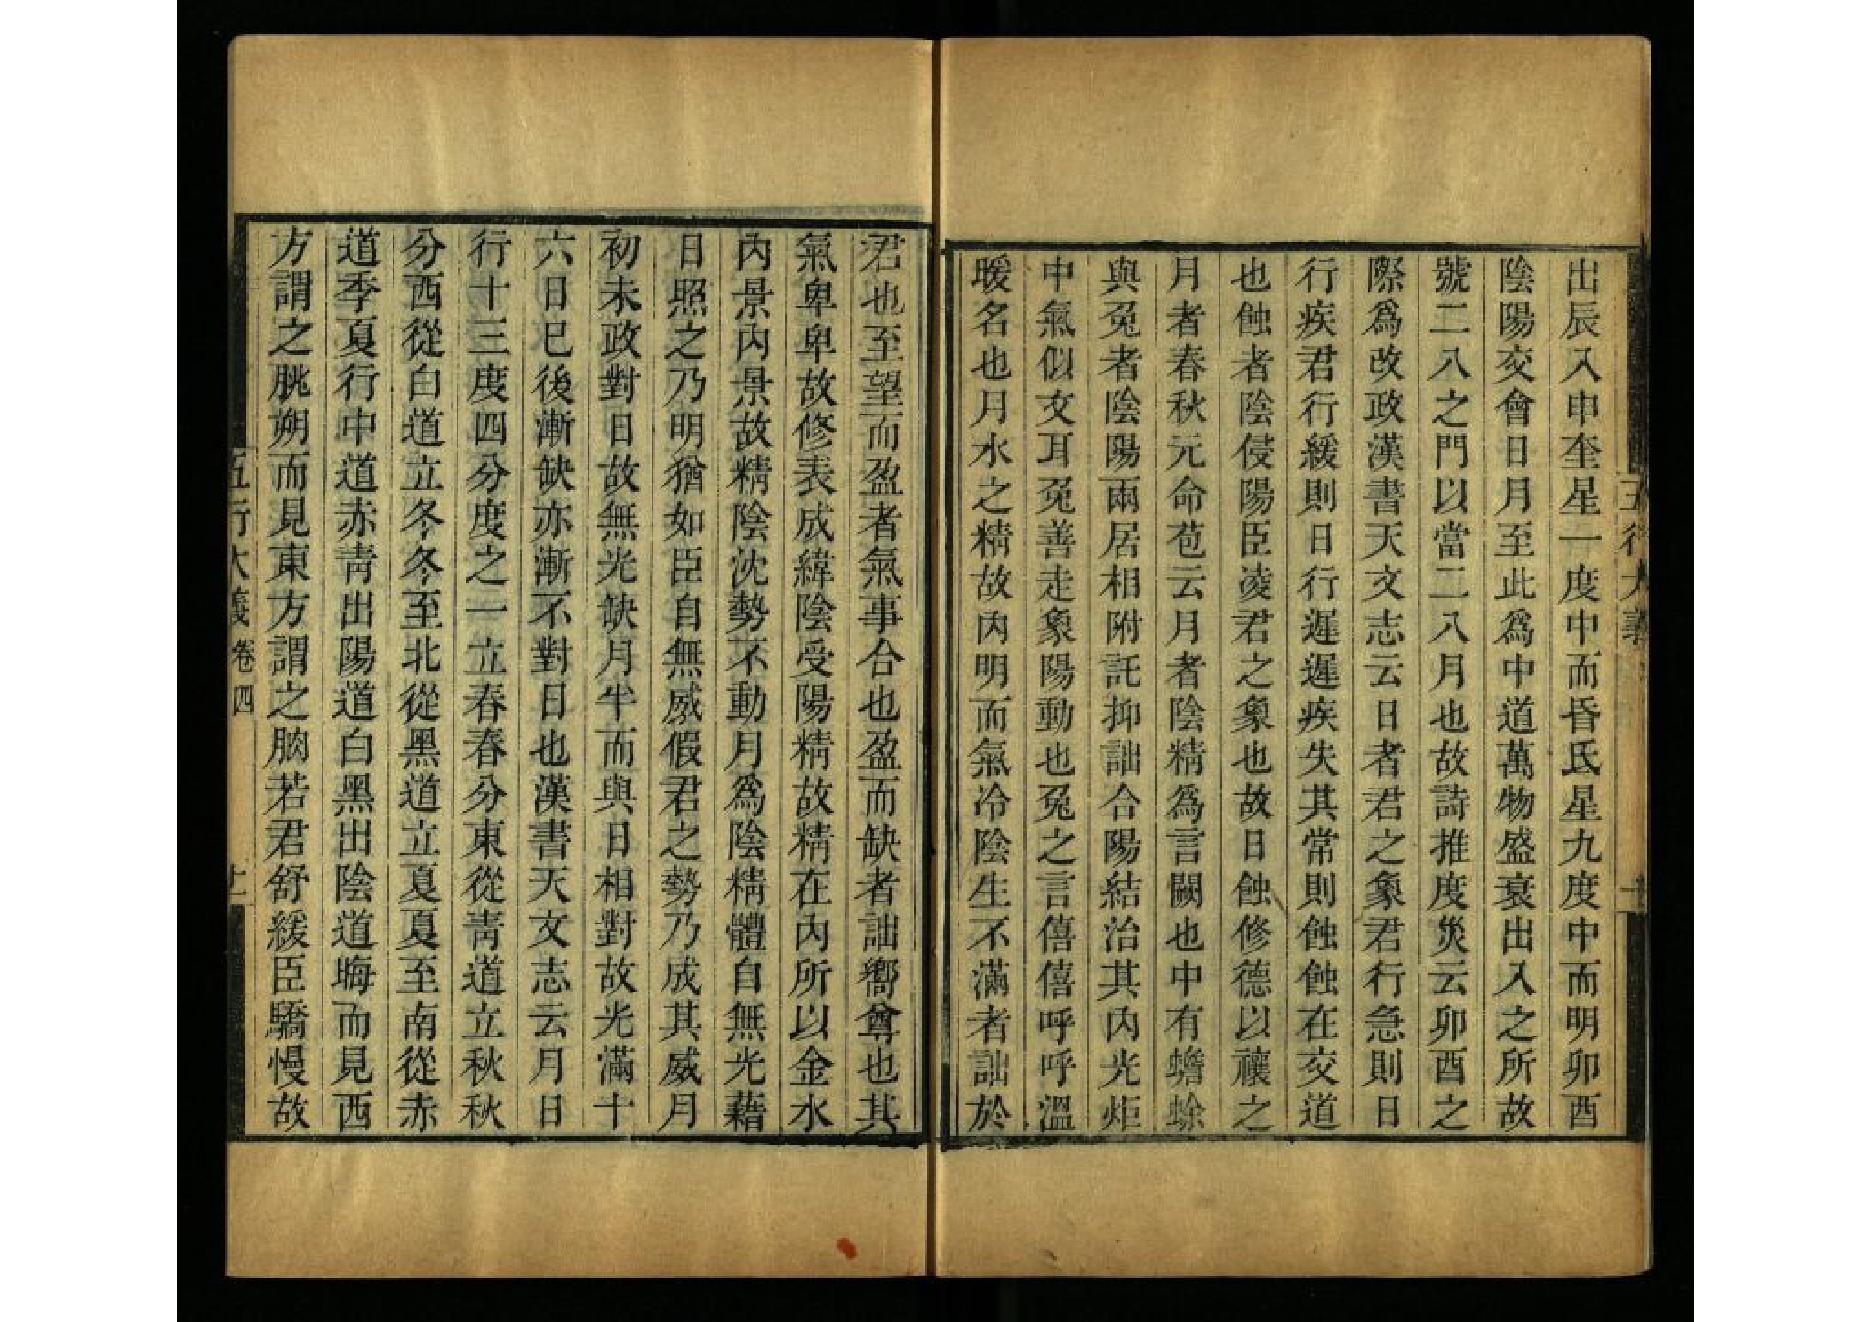 出辰入申奎星一度中而昏氐星九度中而明卯酉
陰陽交會日月至此爲中道萬物盛衰出入之所故
號二八之門以當二八月也故詩推度災云卯酉之
際爲改政漢書天文志云日者君之象君行急則日
行疾君行緩則日行遲遲疾失其常則蝕蝕在交道
也蝕者陰侵陽臣凌君之象也故日蝕修德以禳之
月者春秋元命苞云月者陰精爲言闕也中有蟾蜍
與兔者陰陽兩居相附託抑詘合陽結治其內光炬
中氣似文耳兔善走象陽動也兔之言僖僖呼呼溫
暖名也月水之精故內明而氣冷陰生不滿者詘於
五行大義
君也至望而盈者氣事合也盈而缺者詘嚮尊也其
氣卑卑故修表成緯陰受陽精故精在內所以金水
內景內景故精陰沈勢不動月爲陰精體自無光藉
日照之乃明猶如臣自無威假君之勢乃成其威月
初未政對日故無光缺月半而與日相對故光滿十
六日巳後漸缺亦漸不對日也漢書天文志云月日
行十三度四分度之一立春春分東從靑道立秋秋
分西從白道立冬冬至北從黑道立夏夏至南從赤
道季夏行中道赤靑出陽道白黑出陰道晦而見西
方謂之朓朔而見東方謂之朒若君舒緩臣驕慢故
五行大義 卷四